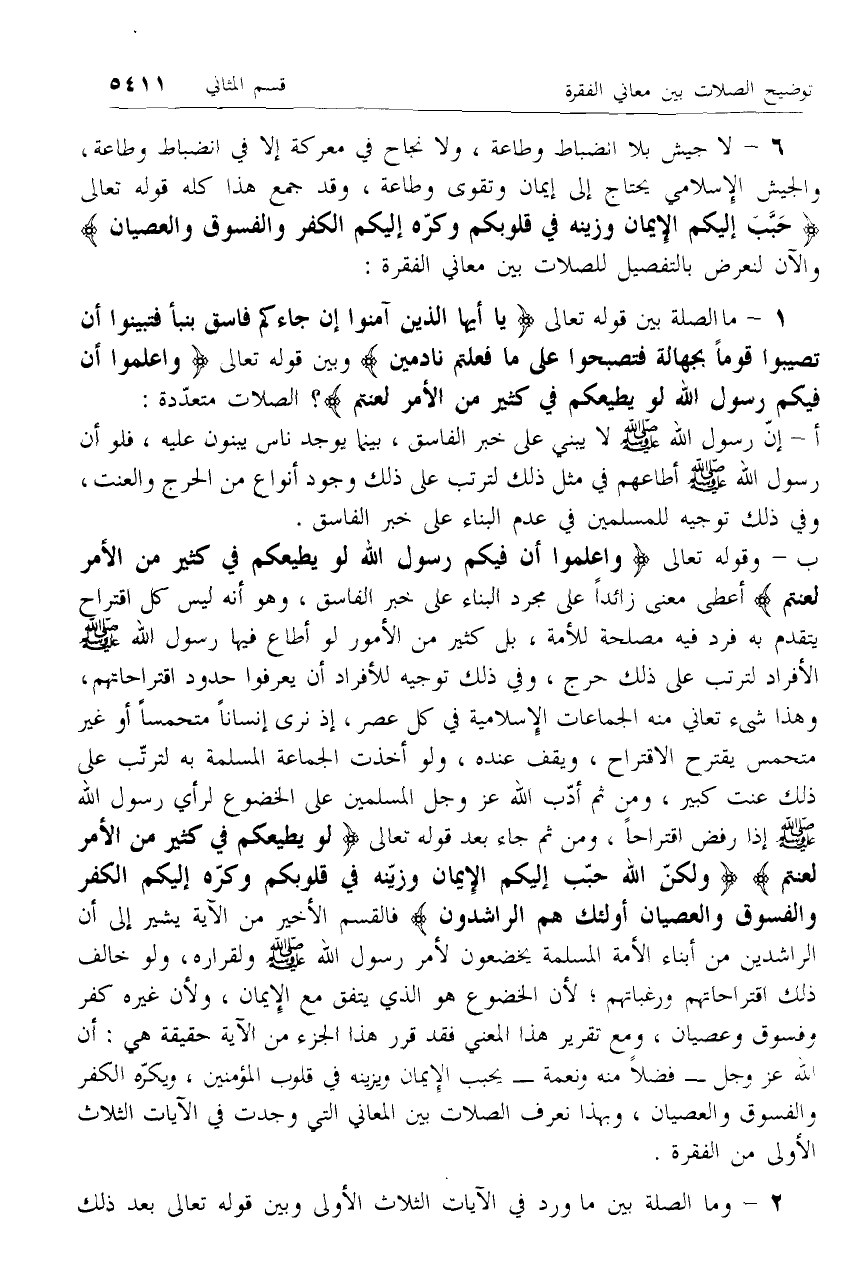 توضيح الصلات بين معاني الفقرة قسم المثاني ٥٤١١
٦ – لا جيش بلا انضباط وطاعة ، ولا نجاح في معركة إلا في انضباط وطاعة ،
والجيش الإسلامي يحتاج إلى إيمان وتقوى وطاعة ، وقد جمع هذا كله قوله تعالى
﴿ حَبَّبَ إليكم الإيمان وزينه في قلوبكم وكرّه إليكم الكفر والفسوق والعصيان ﴾
والآن لنعرض بالتفصيل للصلات بين معاني الفقرة :
١ – ما الصلة بين قوله تعالى ﴿ يا أيها الذين آمنوا إن جاءكم فاسق بنبأ فتبينوا أن
تصيبوا قوماً بجهالة فتصبحوا على ما فعلتم نادمين ﴾ وبين قوله تعالى ﴿ واعلموا أن
فيكم رسول الله لو يطيعكم في كثير من الأمر لعنتم ﴾؟ الصلات متعدّدة :
أ – إنّ رسول الله ﷺ لا يبني على خبر الفاسق ، بينما يوجد ناس يبنون عليه ، فلو أن
رسول الله ﷺ أطاعهم في مثل ذلك لترتب على ذلك وجود أنواع من الحرج والعنت ،
وفي ذلك توجيه للمسلمين في عدم البناء على خبر الفاسق .
ب – وقوله تعالى ﴿ واعلموا أن فيكم رسول الله لو يطيعكم في كثير من الأمر
لعنتم ﴾ أعطى معنى زائداً على مجرد البناء على خبر الفاسق ، وهو أنه ليس كل اقتراح
يتقدم به فرد فيه مصلحة للأمة ، بل كثير من الأمور لو أطاع فيها رسول الله ﷺ
الأفراد لترتب على ذلك حرج ، وفي ذلك توجيه للأفراد أن يعرفوا حدود اقتراحاتهم ،
وهذا شىء تعاني منه الجماعات الإسلامية في كل عصر ، إذ نرى إنساناً متحمساً أو غير
متحمس يقترح الاقتراح ، ويقف عنده ، ولو أخذت الجماعة المسلمة به لترتّب على
ذلك عنت كبير ، ومن ثم أدّب الله عز وجل المسلمين على الخضوع لرأي رسول الله
ﷺ إذا رفض اقتراحاً ، ومن ثم جاء بعد قوله تعالى ﴿ لو يطيعكم في كثير من الأمر
لعنتم ﴾ ﴿ ولكنّ الله حبّب إليكم الإيمان وزيّنه في قلوبكم وكرّه إليكم الكفر
والفسوق والعصيان أولئك هم الراشدون ﴾ فالقسم الأخير من الآية يشير إلى أن
الراشدين من أبناء الأمة المسلمة يخضعون لأمر رسول الله ﷺ ولقراره، ولو خالف
ذلك اقتراحاتهم ورغباتهم ؛ لأن الخضوع هو الذي يتفق مع الإيمان ، ولأن غيره كفر
وفسوق وعصيان ، ومع تقرير هذا المعني فقد قرر هذا الجزء من الآية حقيقة هي : أن
الله عز وجل ــ فضلاً منه ونعمة ــ يحبب الإيمان ويزينه في قلوب المؤمنين ، ويكرّه الكفر
والفسوق والعصيان ، وبهذا نعرف الصلات بين المعاني التي وجدت في الآيات الثلاث
الأولى من الفقرة .
٢ – وما الصلة بين ما ورد في الآيات الثلاث الأولى وبين قوله تعالى بعد ذلك